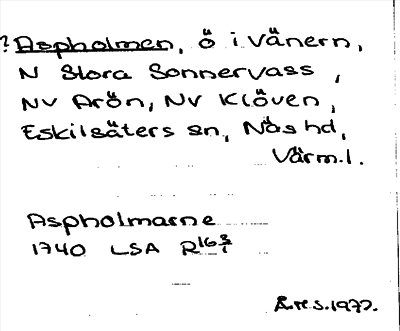 ? Aspholmen, ö i Vänern,
N Stora Sonnervass,
NV Arön, NV Klöven,
Eskilsäters sn, Näs hd,
Värml.
Aspholmarne
1740 LSA R16 3/1
Å.H.S. 1972.